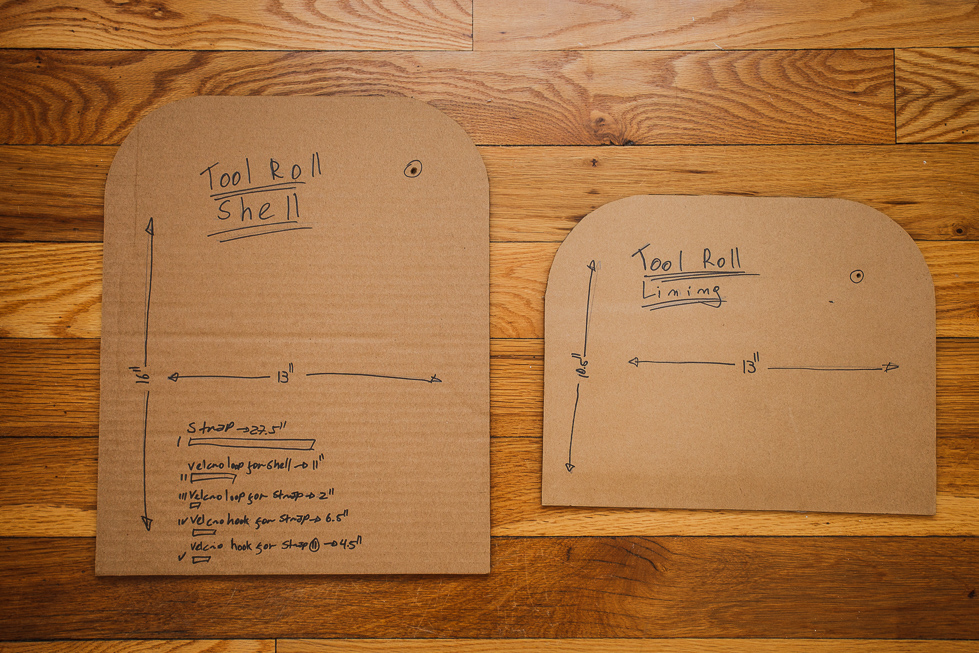 Tool Roll
Shell
16"
13"
I Strap → 27.5"
II Velcro loop for shell → 11"
III Velcro loop for strap → 2"
IV Velcro hook for strap → 6.5"
V Velcro hook for strap II → 4.5"
Tool Roll
Lining
10.5"
13"